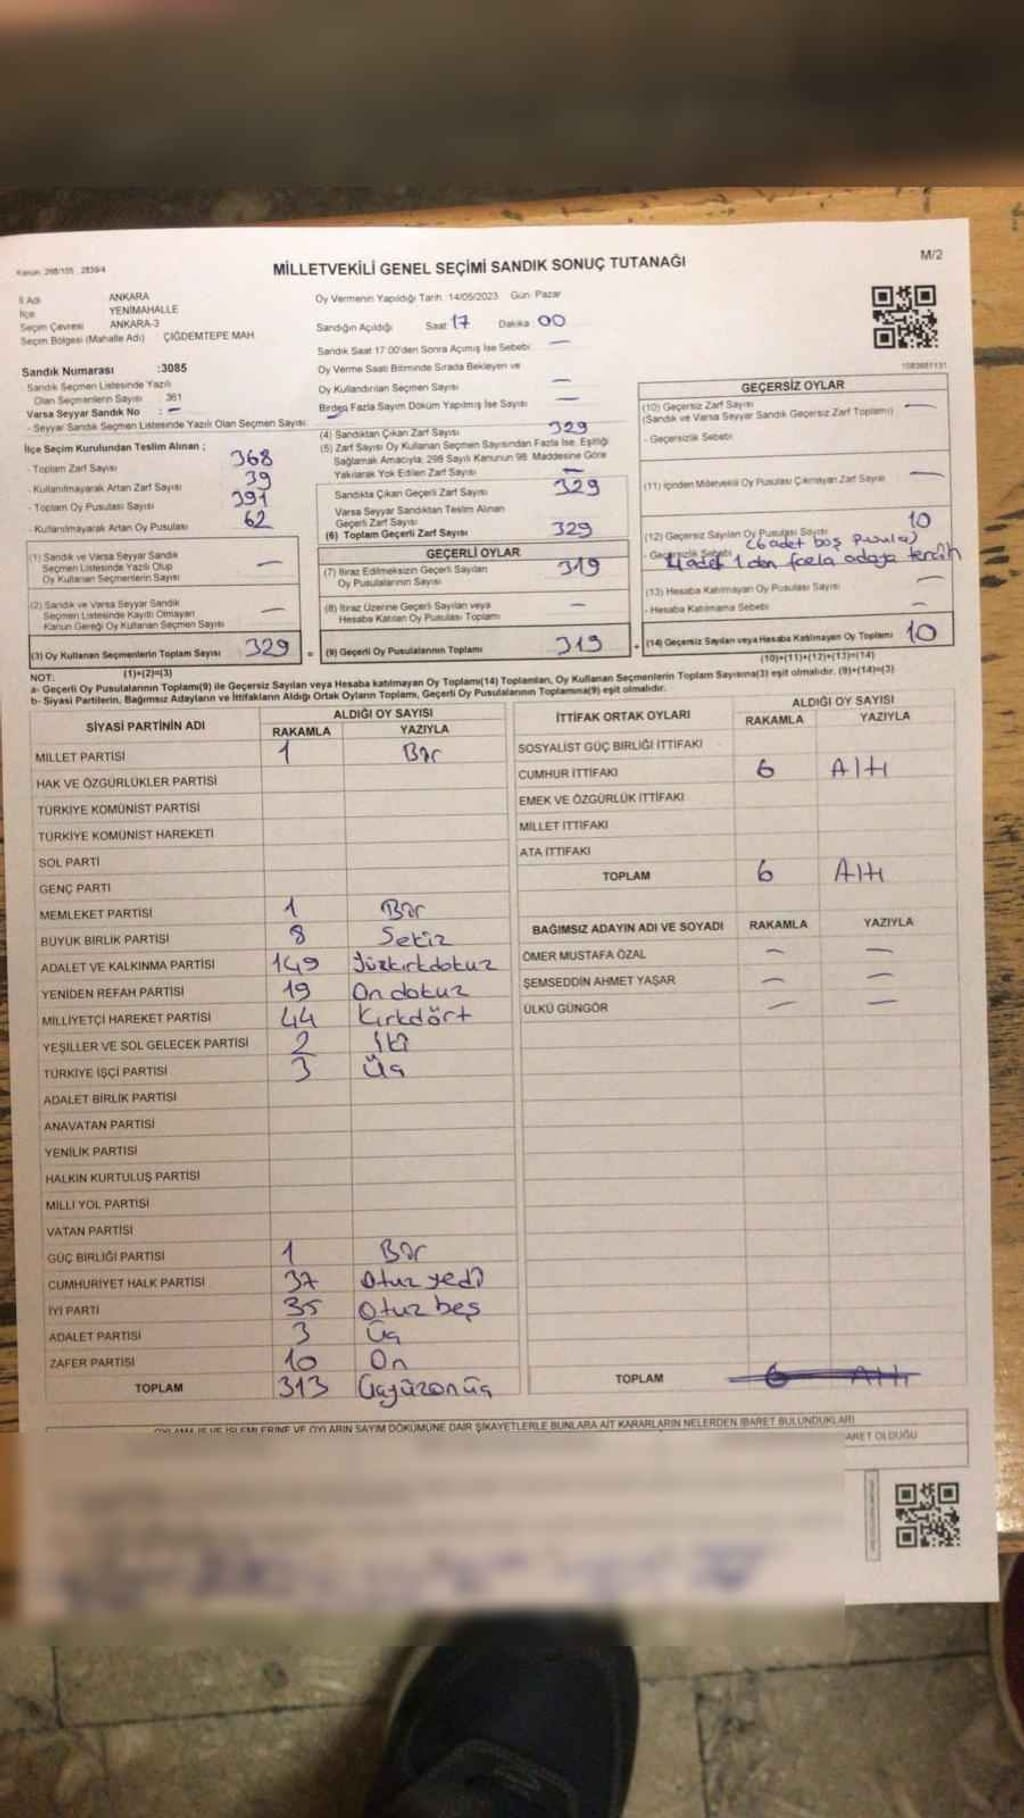 M/2
Kanun: 298/105 2839/4
MİLLETVEKİLİ GENEL SEÇİMİ SANDIK SONUÇ TUTANAĞI
İl Adı ANKARA
İlçe YENİMAHALLE
Seçim Çevresi ANKARA-3
Seçim Bölgesi (Mahalle Adı) ÇİĞDEMTEPE MAH
Sandık Numarası :3085
Sandık Seçmen Listesinde Yazılı
Olan Seçmenlerin Sayısı 361
Varsa Seyyar Sandık No : —
- Seyyar Sandık Seçmen Listesinde Yazılı Olan Seçmen Sayısı
İlçe Seçim Kurulundan Teslim Alınan ;
- Toplam Zarf Sayısı 368
- Kullanılmayarak Artan Zarf Sayısı 39
- Toplam Oy Pusulası Sayısı 391
- Kullanılmayarak Artan Oy Pusulası 62
(1) Sandık ve Varsa Seyyar Sandık
Seçmen Listesinde Yazılı Olup
Oy Kullanan Seçmenlerin Sayısı —
(2) Sandık ve Varsa Seyyar Sandık
Seçmen Listesinde Kayıtlı Olmayan
Kanun Gereği Oy Kullanan Seçmen Sayısı —
(3) Oy Kullanan Seçmenlerin Toplam Sayısı 329
(1)+(2)=(3)
Oy Vermenin Yapıldığı Tarih :14/05/2023 Gün: Pazar
Sandığın Açıldığı Saat 17 Dakika 00
Sandık Saat 17:00'den Sonra Açılmış İse Sebebi —
Oy Verme Saati Bitiminde Sırada Bekleyen ve
Oy Kullandırılan Seçmen Sayısı —
Birden Fazla Sayım Döküm Yapılmış İse Sayısı —
(4) Sandıktan Çıkan Zarf Sayısı 329
(5) Zarf Sayısı Oy Kullanan Seçmen Sayısından Fazla İse, Eşitliği
Sağlamak Amacıyla; 298 Sayılı Kanunun 98. Maddesine Göre
Yakılarak Yok Edilen Zarf Sayısı —
Sandıkta Çıkan Geçerli Zarf Sayısı 329
Varsa Seyyar Sandıktan Teslim Alınan
Geçerli Zarf Sayısı
(6) Toplam Geçerli Zarf Sayısı 329
GEÇERLİ OYLAR
(7) İtiraz Edilmeksizin Geçerli Sayılan
Oy Pusulalarının Sayısı 319
(8) İtiraz Üzerine Geçerli Sayılan veya
Hesaba Katılan Oy Pusulası Toplamı —
= (9) Geçerli Oy Pusulalarının Toplamı 319
GEÇERSİZ OYLAR
(10) Geçersiz Zarf Sayısı —
(Sandık ve Varsa Seyyar Sandık Geçersiz Zarf Toplamı)
- Geçersizlik Sebebi
(11) İçinden Milletvekili Oy Pusulası Çıkmayan Zarf Sayısı —
(12) Geçersiz Sayılan Oy Pusulası Sayısı 10
- Geçersizlik Sebebi (6 adet boş pusula)
4 adet 1 den fazla adaya tercih
(13) Hesaba Katılmayan Oy Pusulası Sayısı —
- Hesaba Katılmama Sebebi —
+ (14) Geçersiz Sayılan veya Hesaba Katılmayan Oy Toplamı 10
(10)+(11)+(12)+(13)=(14)
NOT:
a- Geçerli Oy Pusulalarının Toplamı(9) ile Geçersiz Sayılan veya Hesaba katılmayan Oy Toplamı(14) Toplamları, Oy Kullanan Seçmenlerin Toplam Sayısına(3) eşit olmalıdır. (9)+(14)=(3)
b- Siyasi Partilerin, Bağımsız Adayların ve İttifakların Aldığı Ortak Oyların Toplamı, Geçerli Oy Pusulalarının Toplamına(9) eşit olmalıdır.
SİYASİ PARTİNİN ADI ALDIĞI OY SAYISI
RAKAMLA YAZIYLA
MİLLET PARTİSİ 1 Bir
HAK VE ÖZGÜRLÜKLER PARTİSİ
TÜRKİYE KOMÜNİST PARTİSİ
TÜRKİYE KOMÜNİST HAREKETİ
SOL PARTİ
GENÇ PARTİ
MEMLEKET PARTİSİ 1 Bir
BÜYÜK BİRLİK PARTİSİ 8 Sekiz
ADALET VE KALKINMA PARTİSİ 149 Yüzkırkdokuz
YENİDEN REFAH PARTİSİ 19 On dokuz
MİLLİYETÇİ HAREKET PARTİSİ 44 Kırkdört
YEŞİLLER VE SOL GELECEK PARTİSİ 2 İki
TÜRKİYE İŞÇİ PARTİSİ 3 Üç
ADALET BİRLİK PARTİSİ
ANAVATAN PARTİSİ
YENİLİK PARTİSİ
HALKIN KURTULUŞ PARTİSİ
MİLLİ YOL PARTİSİ
VATAN PARTİSİ
GÜÇ BİRLİĞİ PARTİSİ 1 Bir
CUMHURİYET HALK PARTİSİ 37 Otuz yedi
İYİ PARTİ 35 Otuz beş
ADALET PARTİSİ 3 Üç
ZAFER PARTİSİ 10 On
TOPLAM 313 Üçyüzonüç
İTTİFAK ORTAK OYLARI ALDIĞI OY SAYISI
RAKAMLA YAZIYLA
SOSYALİST GÜÇ BİRLİĞİ İTTİFAKI
CUMHUR İTTİFAKI 6 Altı
EMEK VE ÖZGÜRLÜK İTTİFAKI
MİLLET İTTİFAKI
ATA İTTİFAKI
TOPLAM 6 Altı
BAĞIMSIZ ADAYIN ADI VE SOYADI RAKAMLA YAZIYLA
ÖMER MUSTAFA ÖZAL — —
ŞEMSEDDİN AHMET YAŞAR — —
ÜLKÜ GÜNGÖR — —
TOPLAM 6 Altı
OYLAMA İŞ VE İŞLEMLERİNE VE OYLARIN SAYIM DÖKÜMÜNE DAİR ŞİKAYETLERLE BUNLARA AİT KARARLARIN NELERDEN İBARET BULUNDUKLARI
OLDUĞU